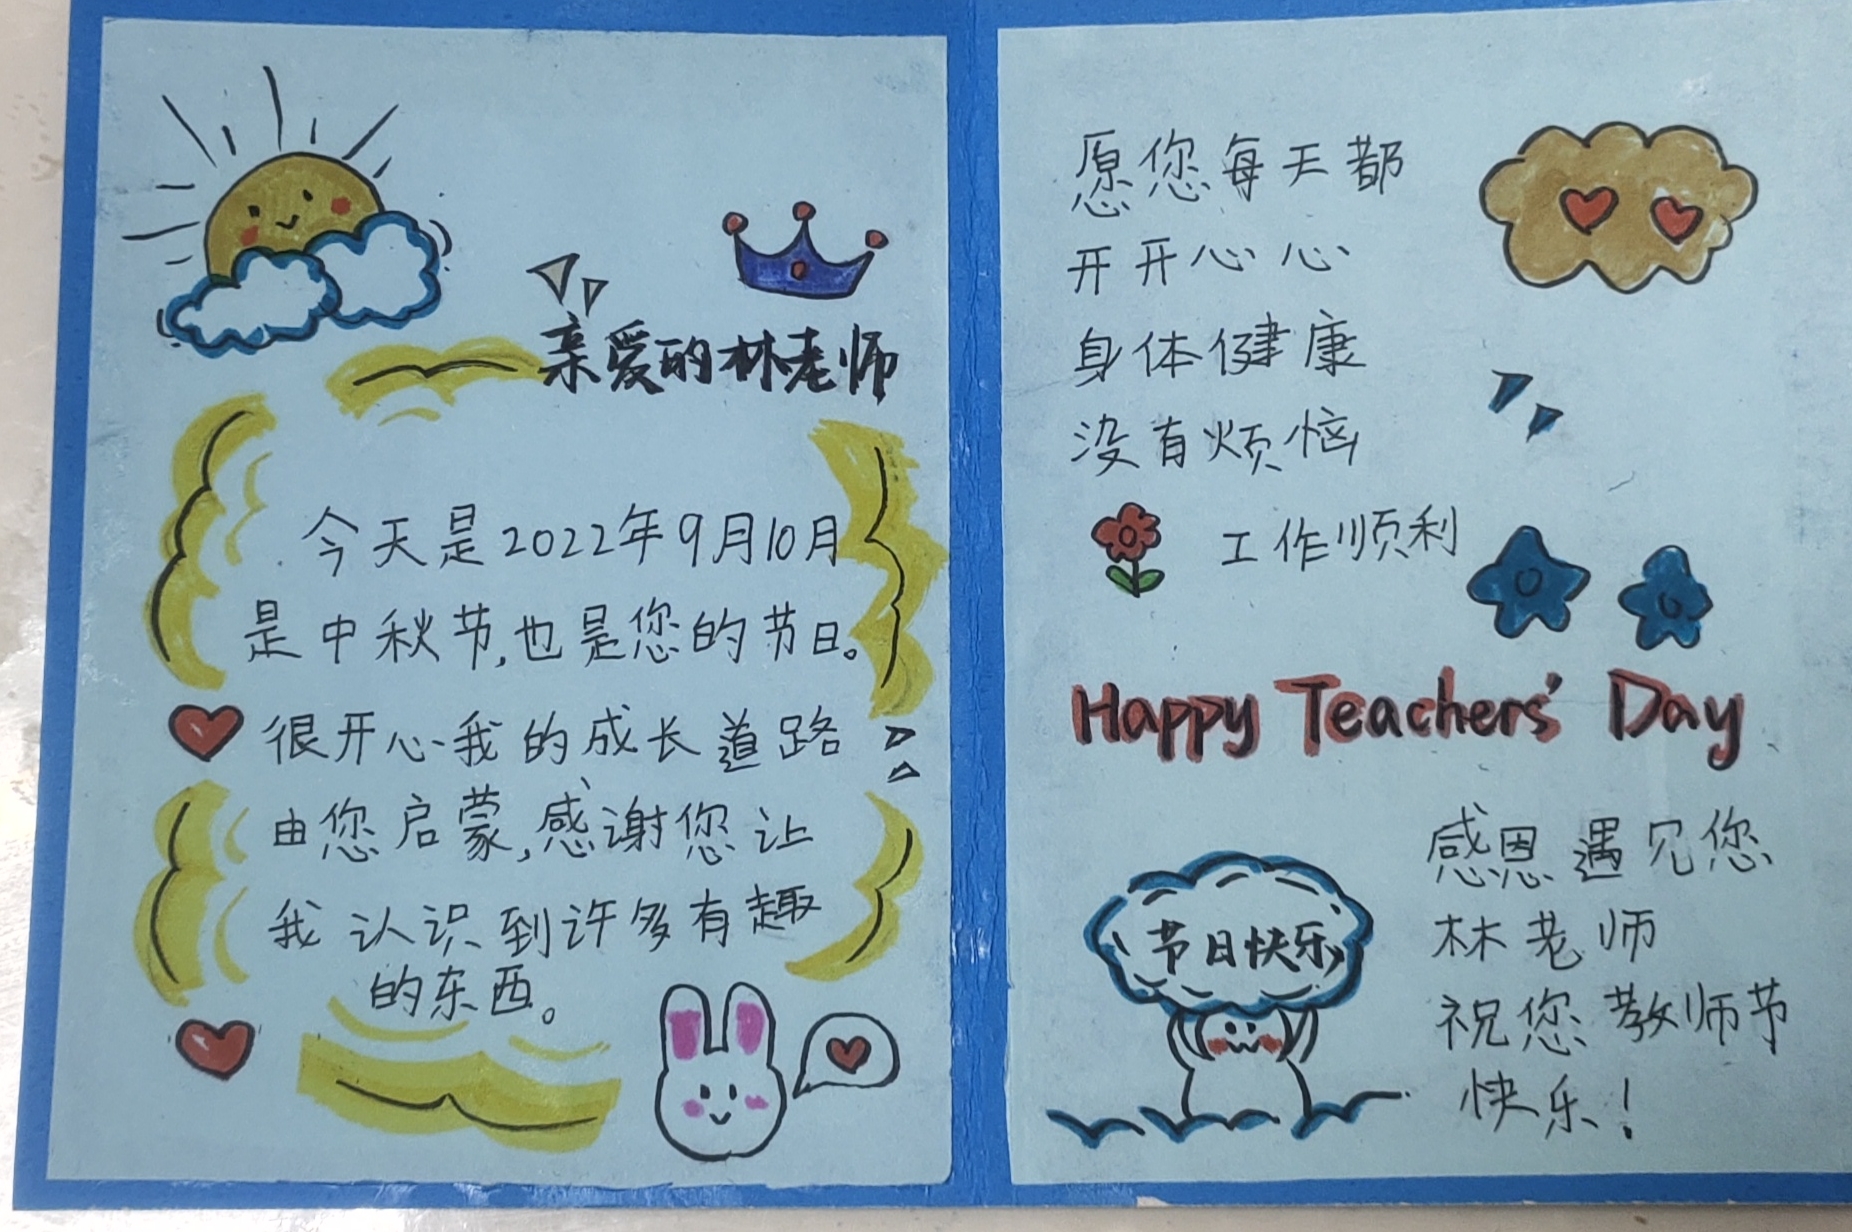 亲爱的林老师
今天是2022年9月10月
是中秋节,也是您的节日。
很开心我的成长道路
由您启蒙,感谢您让
我认识到许多有趣
的东西。
愿您每天都
开开心心
身体健康
没有烦恼
工作顺利
Happy Teachers' Day
节日快乐
感恩遇见您
林老师
祝您教师节
快乐!